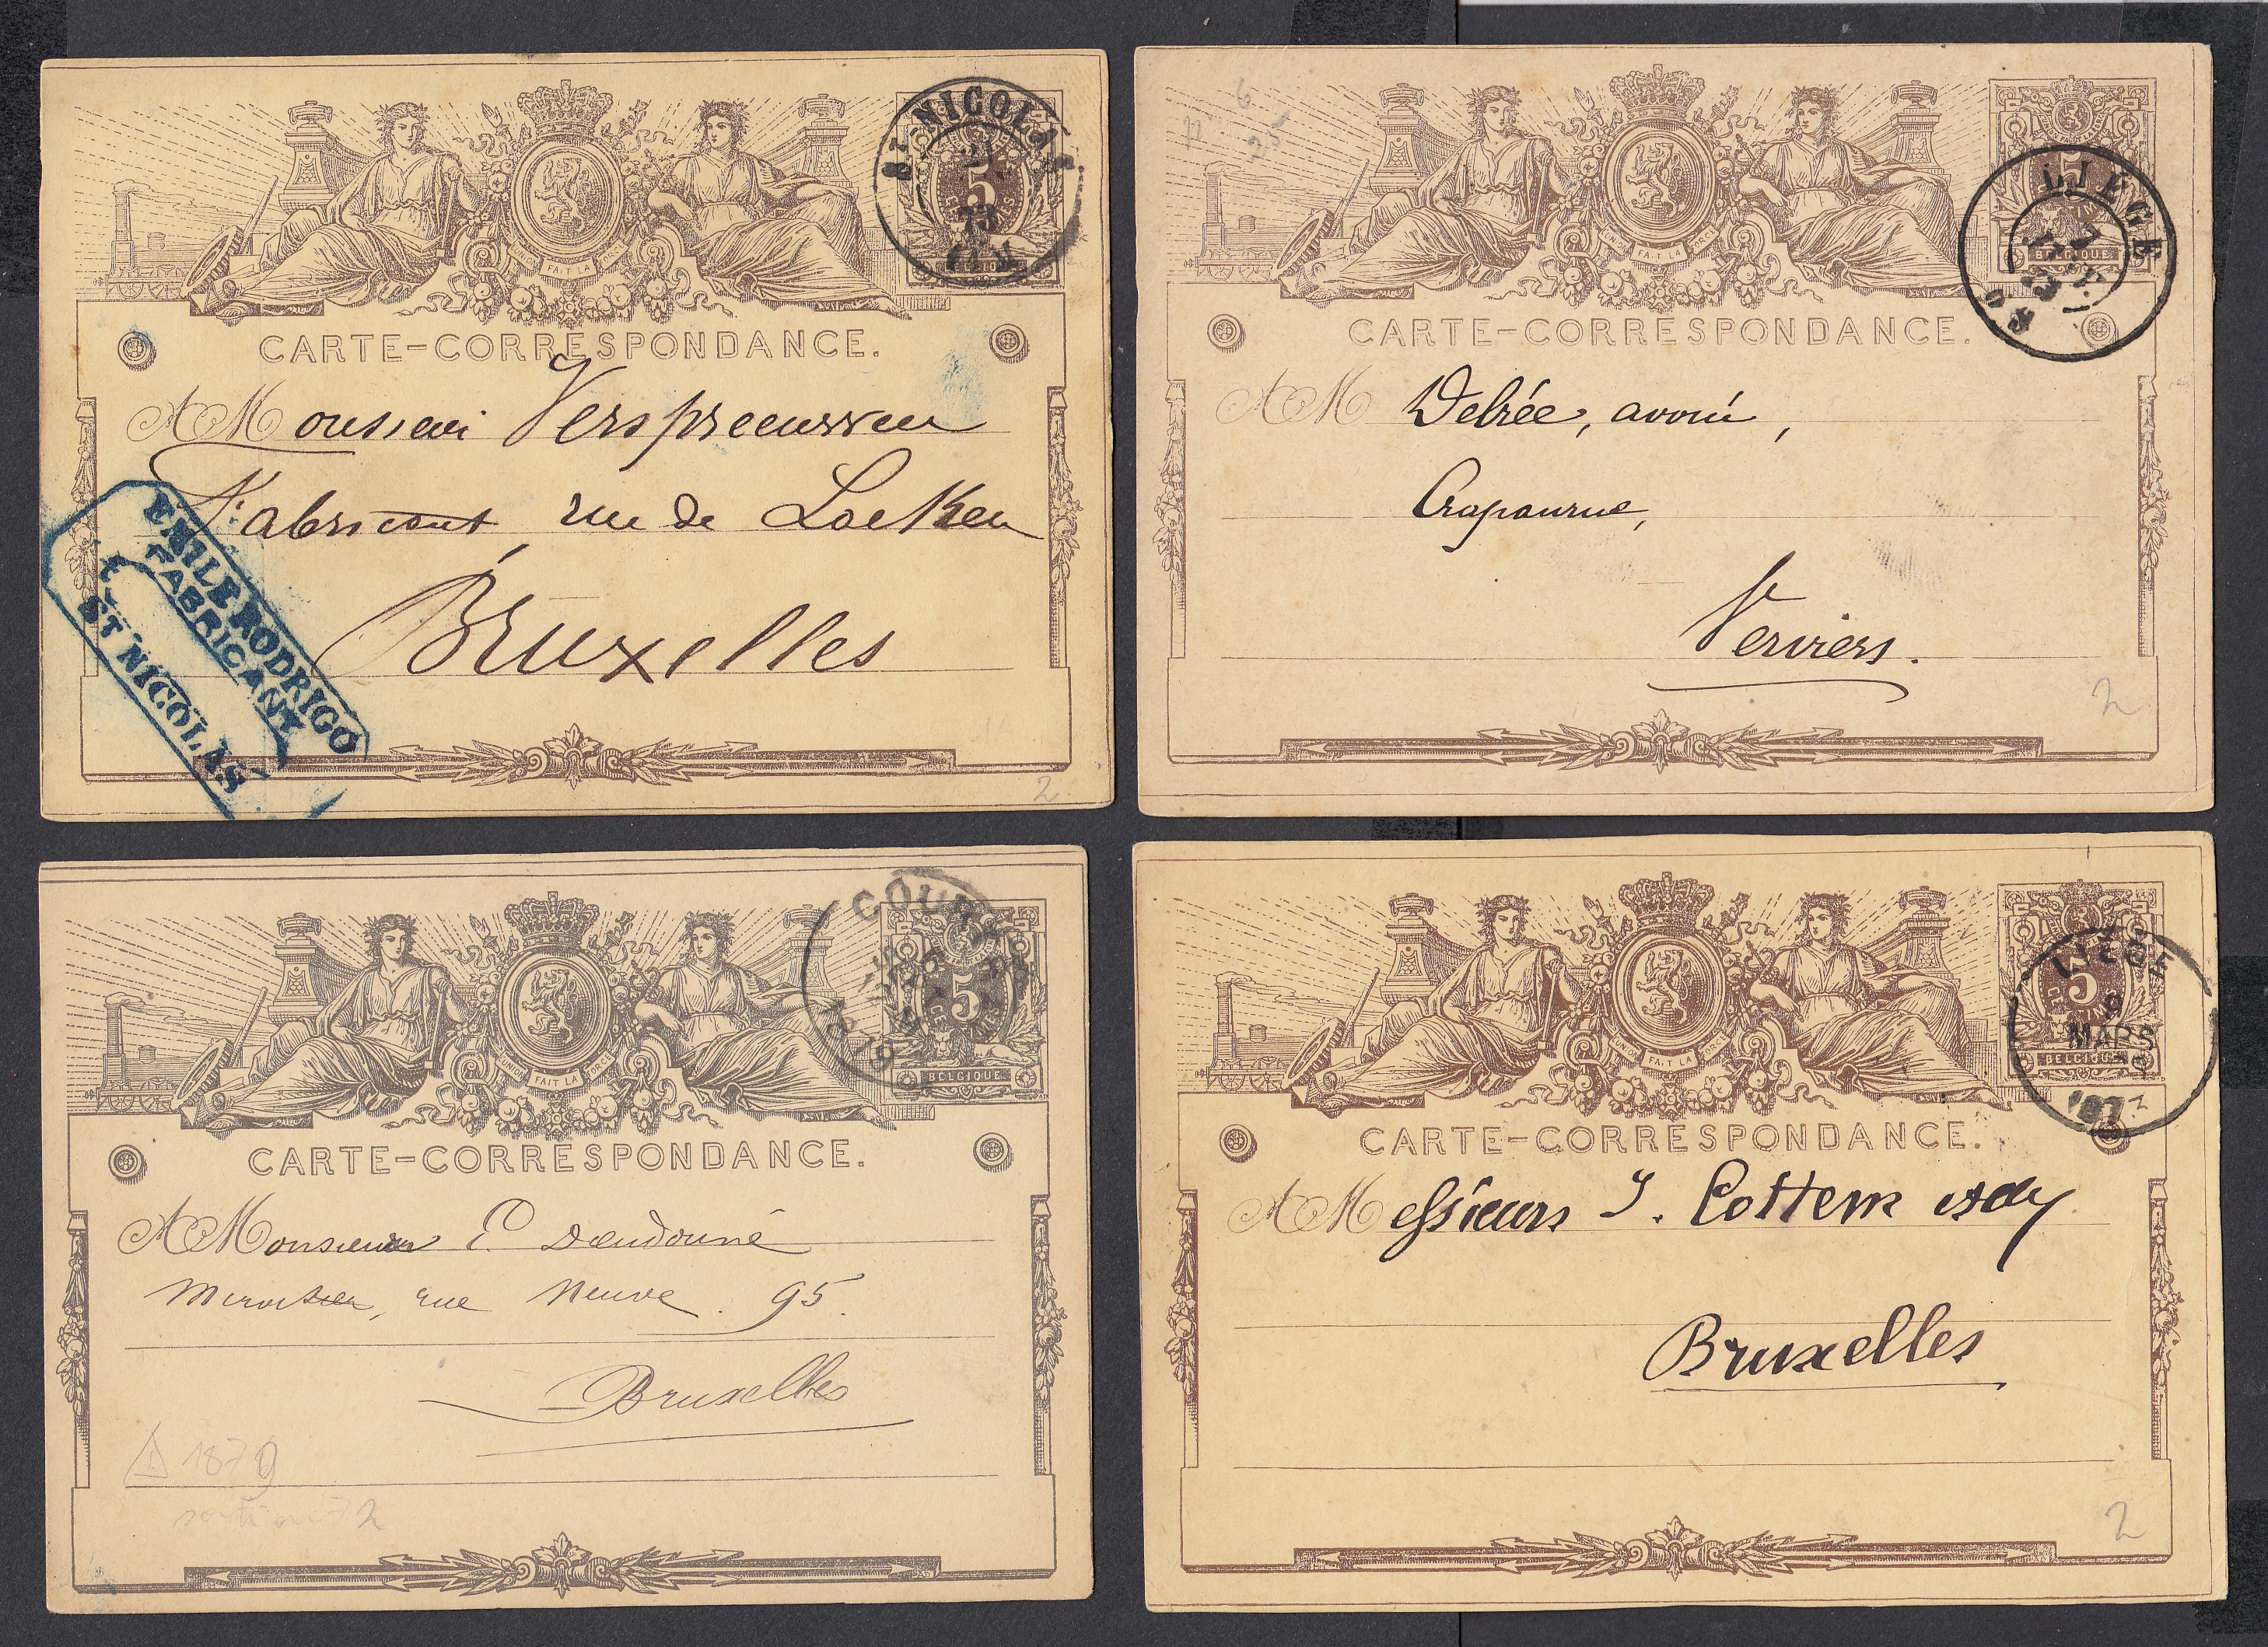 ST NICOLAS
21
73
5
L'UNION FAIT LA FORCE
CARTE-CORRESPONDANCE.
A Monsieur Verspreeuwen
Fabricant rue de Laeken
Bruxelles
EMILE RODRIGO
FABRICANT
ST NICOLAS
2
6
25
LIÉGE
7
5
BELGIQUE
L'UNION FAIT LA FORCE
CARTE-CORRESPONDANCE.
A M Debrée, avoué,
Crapaurue,
Verviers.
2
COUR
1879
5
CENTIMES
BELGIQUE
L'UNION FAIT LA FORCE
CARTE-CORRESPONDANCE.
A Monsieur E. Dieudonné
Miroitier, rue Neuve. 95.
Bruxelles
1879
2
LIÉGE
9
MARS
5
CENTIMES
BELGIQUE
L'UNION FAIT LA FORCE
CARTE-CORRESPONDANCE.
A Messieurs J. Cottem
Bruxelles
2